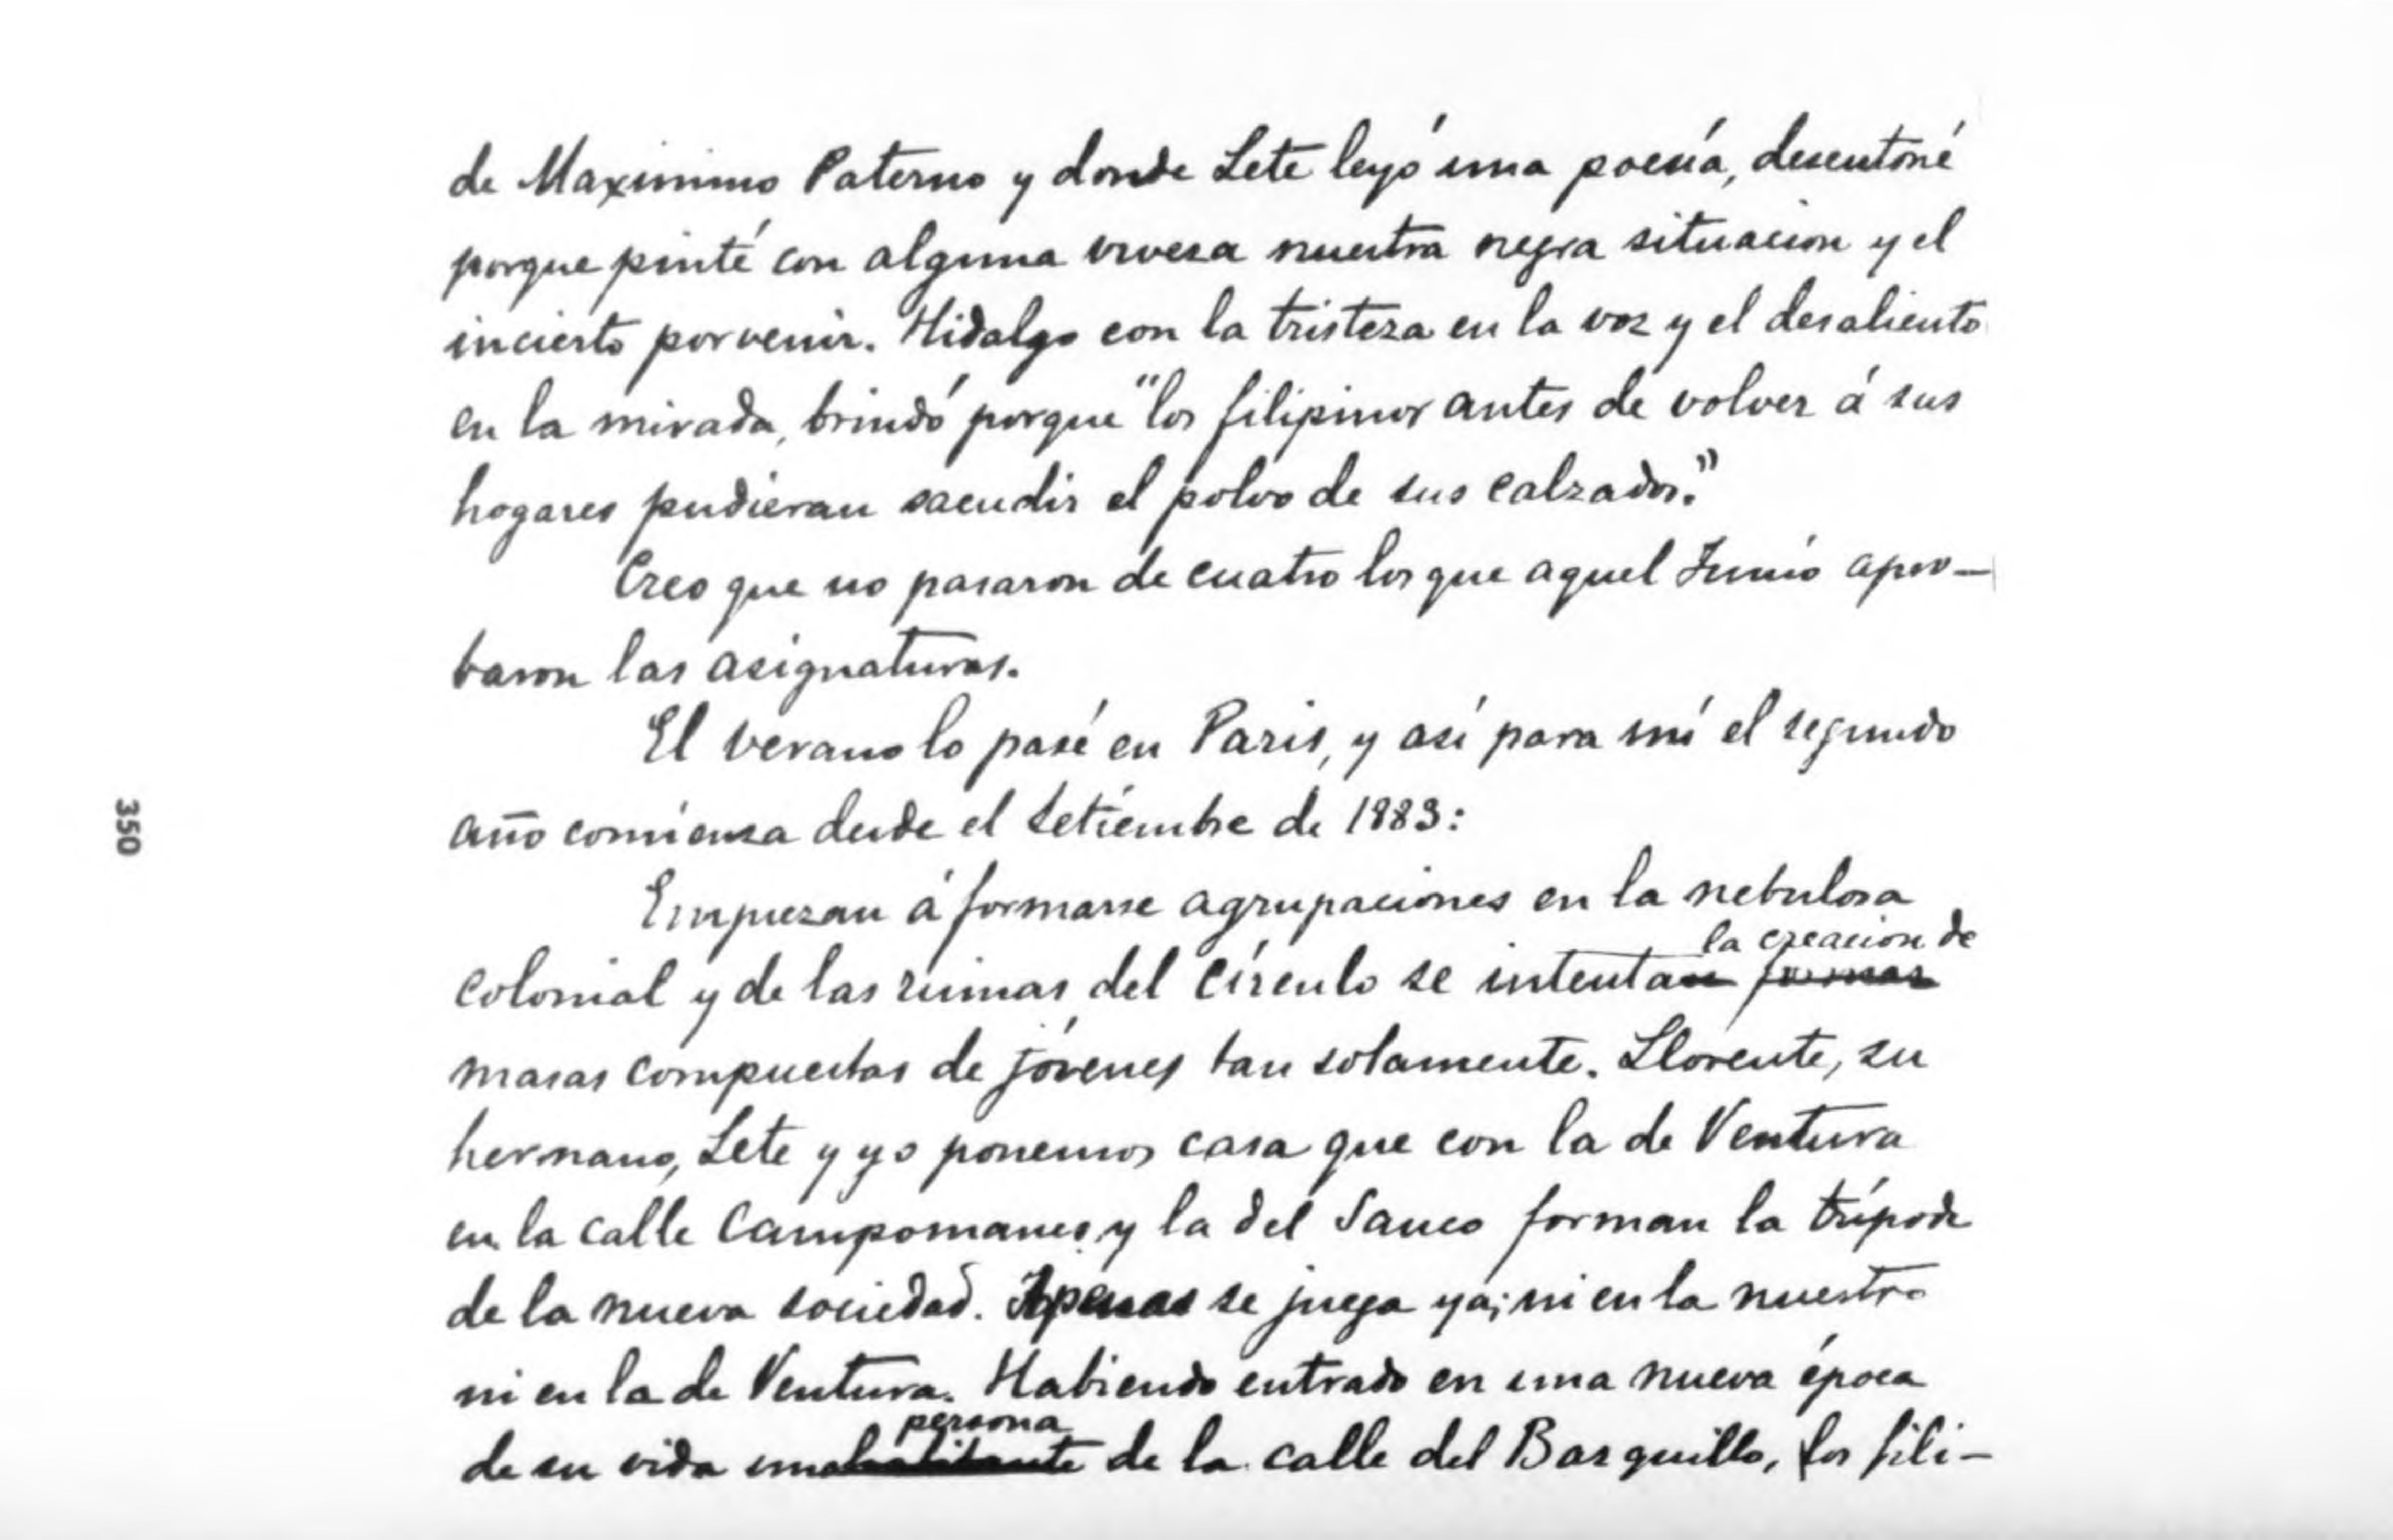 de Maximino Paterno y donde Lete leyó una poesía, desentoné
porque pinté con alguna viveza nuestra negra situacion y el
incierto porvenir. Hidalgo con la tristeza en la voz y el desaliento
en la mirada, brindó porque "los filipinos antes de volver á sus
hogares pudieran sacudir el polvo de sus calzados."
Creo que no pasaron de cuatro los que aquel Junio apro-
baron las asignaturas.
El verano lo pasé en Paris, y así para mí el segundo
año comienza desde el Setiembre de 1883:
Empiezan á formarse agrupaciones en la nebulosa
la creacion de
colonial y de las ruinas del Círculo se intentan formar
masas compuestas de jóvenes tan solamente. Llorente, su
hermano, Lete y yo ponemos casa que con la de Ventura
en la calle Campomanes y la del Sauco forman la trípode
de la nueva sociedad. Apenas se juega ya; ni en la nuestra
ni en la de Ventura. Habiendo entrado en una nueva época
persona
de su vida una habitante de la calle del Barquillo, los fili-
350